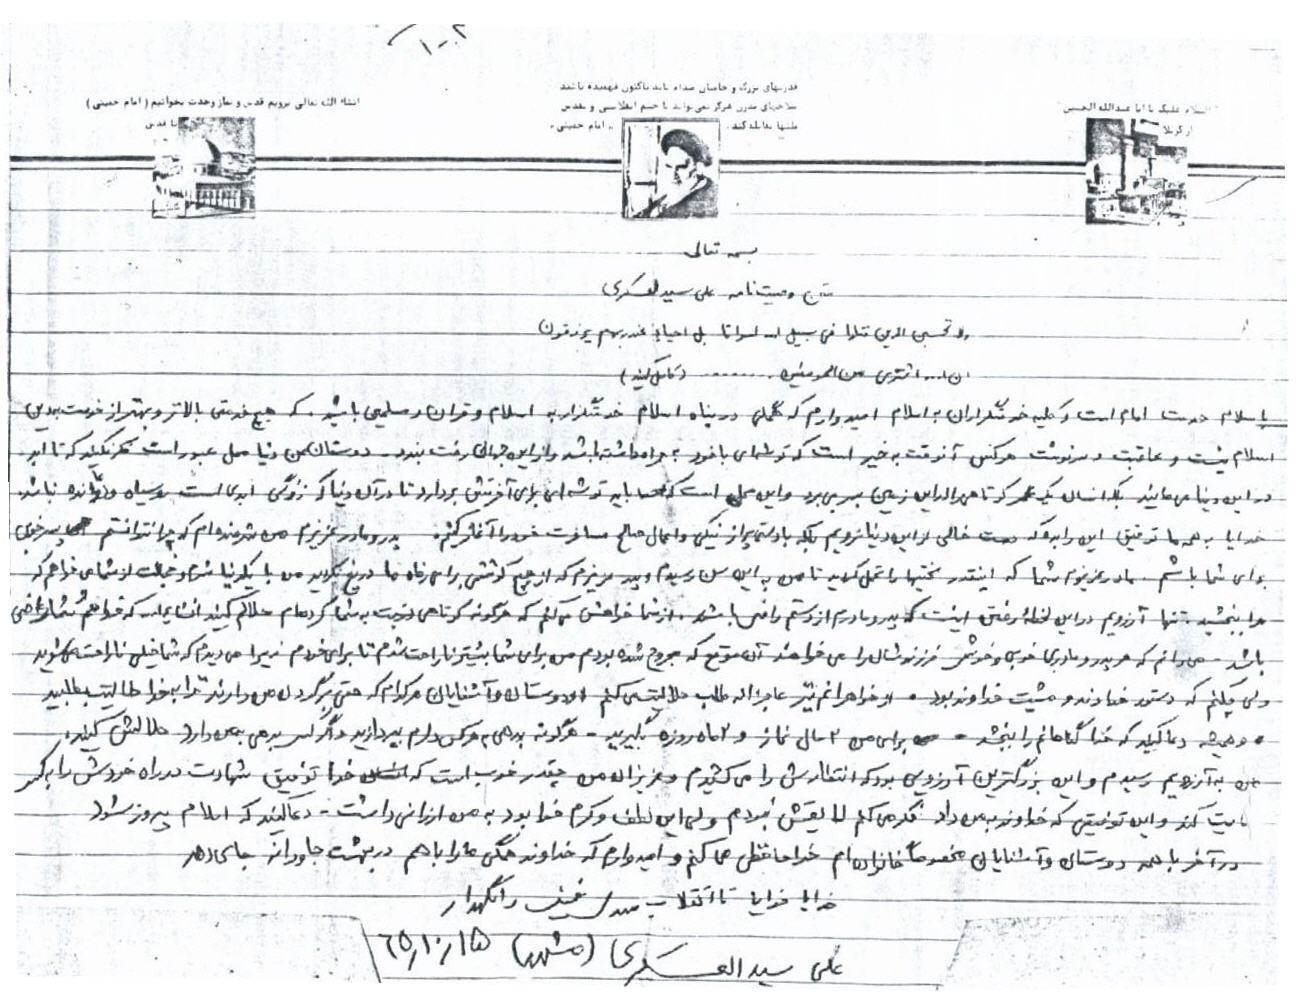 ۱۰۲
قدرتهای بزرگ و حامیان صدام باید تاکنون فهمیده باشند
سلاحهای مدرن هرگز نمی‌تواند با خشم انقلابی و مقدس
ملتها مقابله کند. امام خمینی
انشاء الله تعالی برویم قدس و نماز وحدت بخوانیم (امام خمینی)
تا قدس
السلام علیک یا ابا عبدالله الحسین
از کربلا
بسمه تعالی
متن وصیت نامه علی سیدالعسکری
ولا تحسبن الذین قتلوا فی سبیل الله امواتا بل احیاء عند ربهم یرزقون
ان ا... اشتری من المومنین ........ (کامل کنید)
با سلام خدمت امام امت و کلیه خدمتگزاران به اسلام امیدوارم که همگی در پناه اسلام خدمتگزار به اسلام و قرآن و مسلمین باشید. که هیچ خدمتی بالاتر و بهتر از خدمت به دین
اسلام نیست و عاقبت و سرنوشت هرکس آنوقت به خیر است که توشه‌ای با خود به همراه داشته باشد و از این جهان رخت ببندد. دوستان من دنیا محل عبور است فکر نکنید که تا ابد
در این دنیا می‌مانید بلکه انسان یک عمر کوتاهی را در این زمین بسر می‌برد و این محل است که باید توشه‌ای برای آخرتش بردارد تا در آن دنیا که زندگی ابدی است روسیاه و درمانده نباشد
خدایا به همه ما توفیق این را بده که دست خالی از این دنیا نرویم بلکه با دستی پر از نیکی و اعمال صالح مسافرت خود را آغاز کنم. پدر و مادر عزیزم من شرمنده‌ام که چرا نتوانستم پسر خوبی
برای شما باشم. مادر عزیزم شما که اینقدر سختیها را تحمل کردید تا من به این سن رسیدم و پدر عزیزم که از هیچ کوششی برای رفاه ما دریغ نکردید من با یکدنیا شرم و خجالت از شما می‌خواهم که
مرا ببخشید تنها آرزویم در این لحظه رفتن اینست که پدر و مادرم از دستم راضی باشند. از شما خواهش می‌کنم که هرگونه کوتاهی در خدمت به شما کرده‌ام حلالم کنید انشاءالله که خدا هم از شما راضی
باشد. می‌دانم که هر پدر و مادری خوبی و خوشی فرزندشان را می‌خواهند آن موقع که مجروح شده بودم من برای شما بیشتر ناراحت شدم تا برای خودم زیرا می‌دیدم که شما خیلی ناراحت می‌شوید
ولی چکنم که دستور خداوند و مشیت خداوند بود. از خواهرانم نیز عاجزانه طلب حلالیت می‌کنم از دوستان و آشنایان هرکدام که حقی برگردن من دارند مرا بخدا حلالیت بطلبید
و همیشه دعا کنید که خدا گناهانم را ببخشد. برای من ۲ سال نماز و ۲ ماه روزه بگیرید. هرگونه بدهی به هرکس دارم بپردازید و اگر کسی بدهی به من دارد حلالش کنید.
من به آرزویم رسیدم و این بزرگترین آرزویی بود که انتظارش را می‌کشیدم عزیزان من چقدر خوب است که خدا توفیق شهادت در راه خودش را به کسی
عنایت کند و این توفیقی که خداوند به من داد فکر می‌کنم لایقش نبودم ولی این لطف و کرم خدا بود به من ارزانی داشت. دعا کنید که اسلام پیروز شود
در آخر با همه دوستان و آشنایان مخصوصاً خانواده‌ام خداحافظی می‌کنم و امیدوارم که خداوند همگی ما را با هم در بهشت جاودانه جای دهد
خدایا خدایا تا انقلاب مهدی خمینی را نگهدار
علی سیدالعسکری (مشهد) ۶۵/۱۰/۱۵